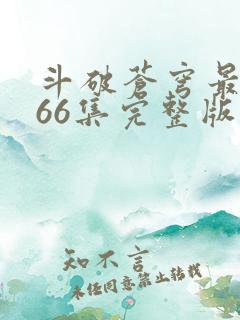 斗破苍穹最
66集完整版
知不言
未经同意禁止转载